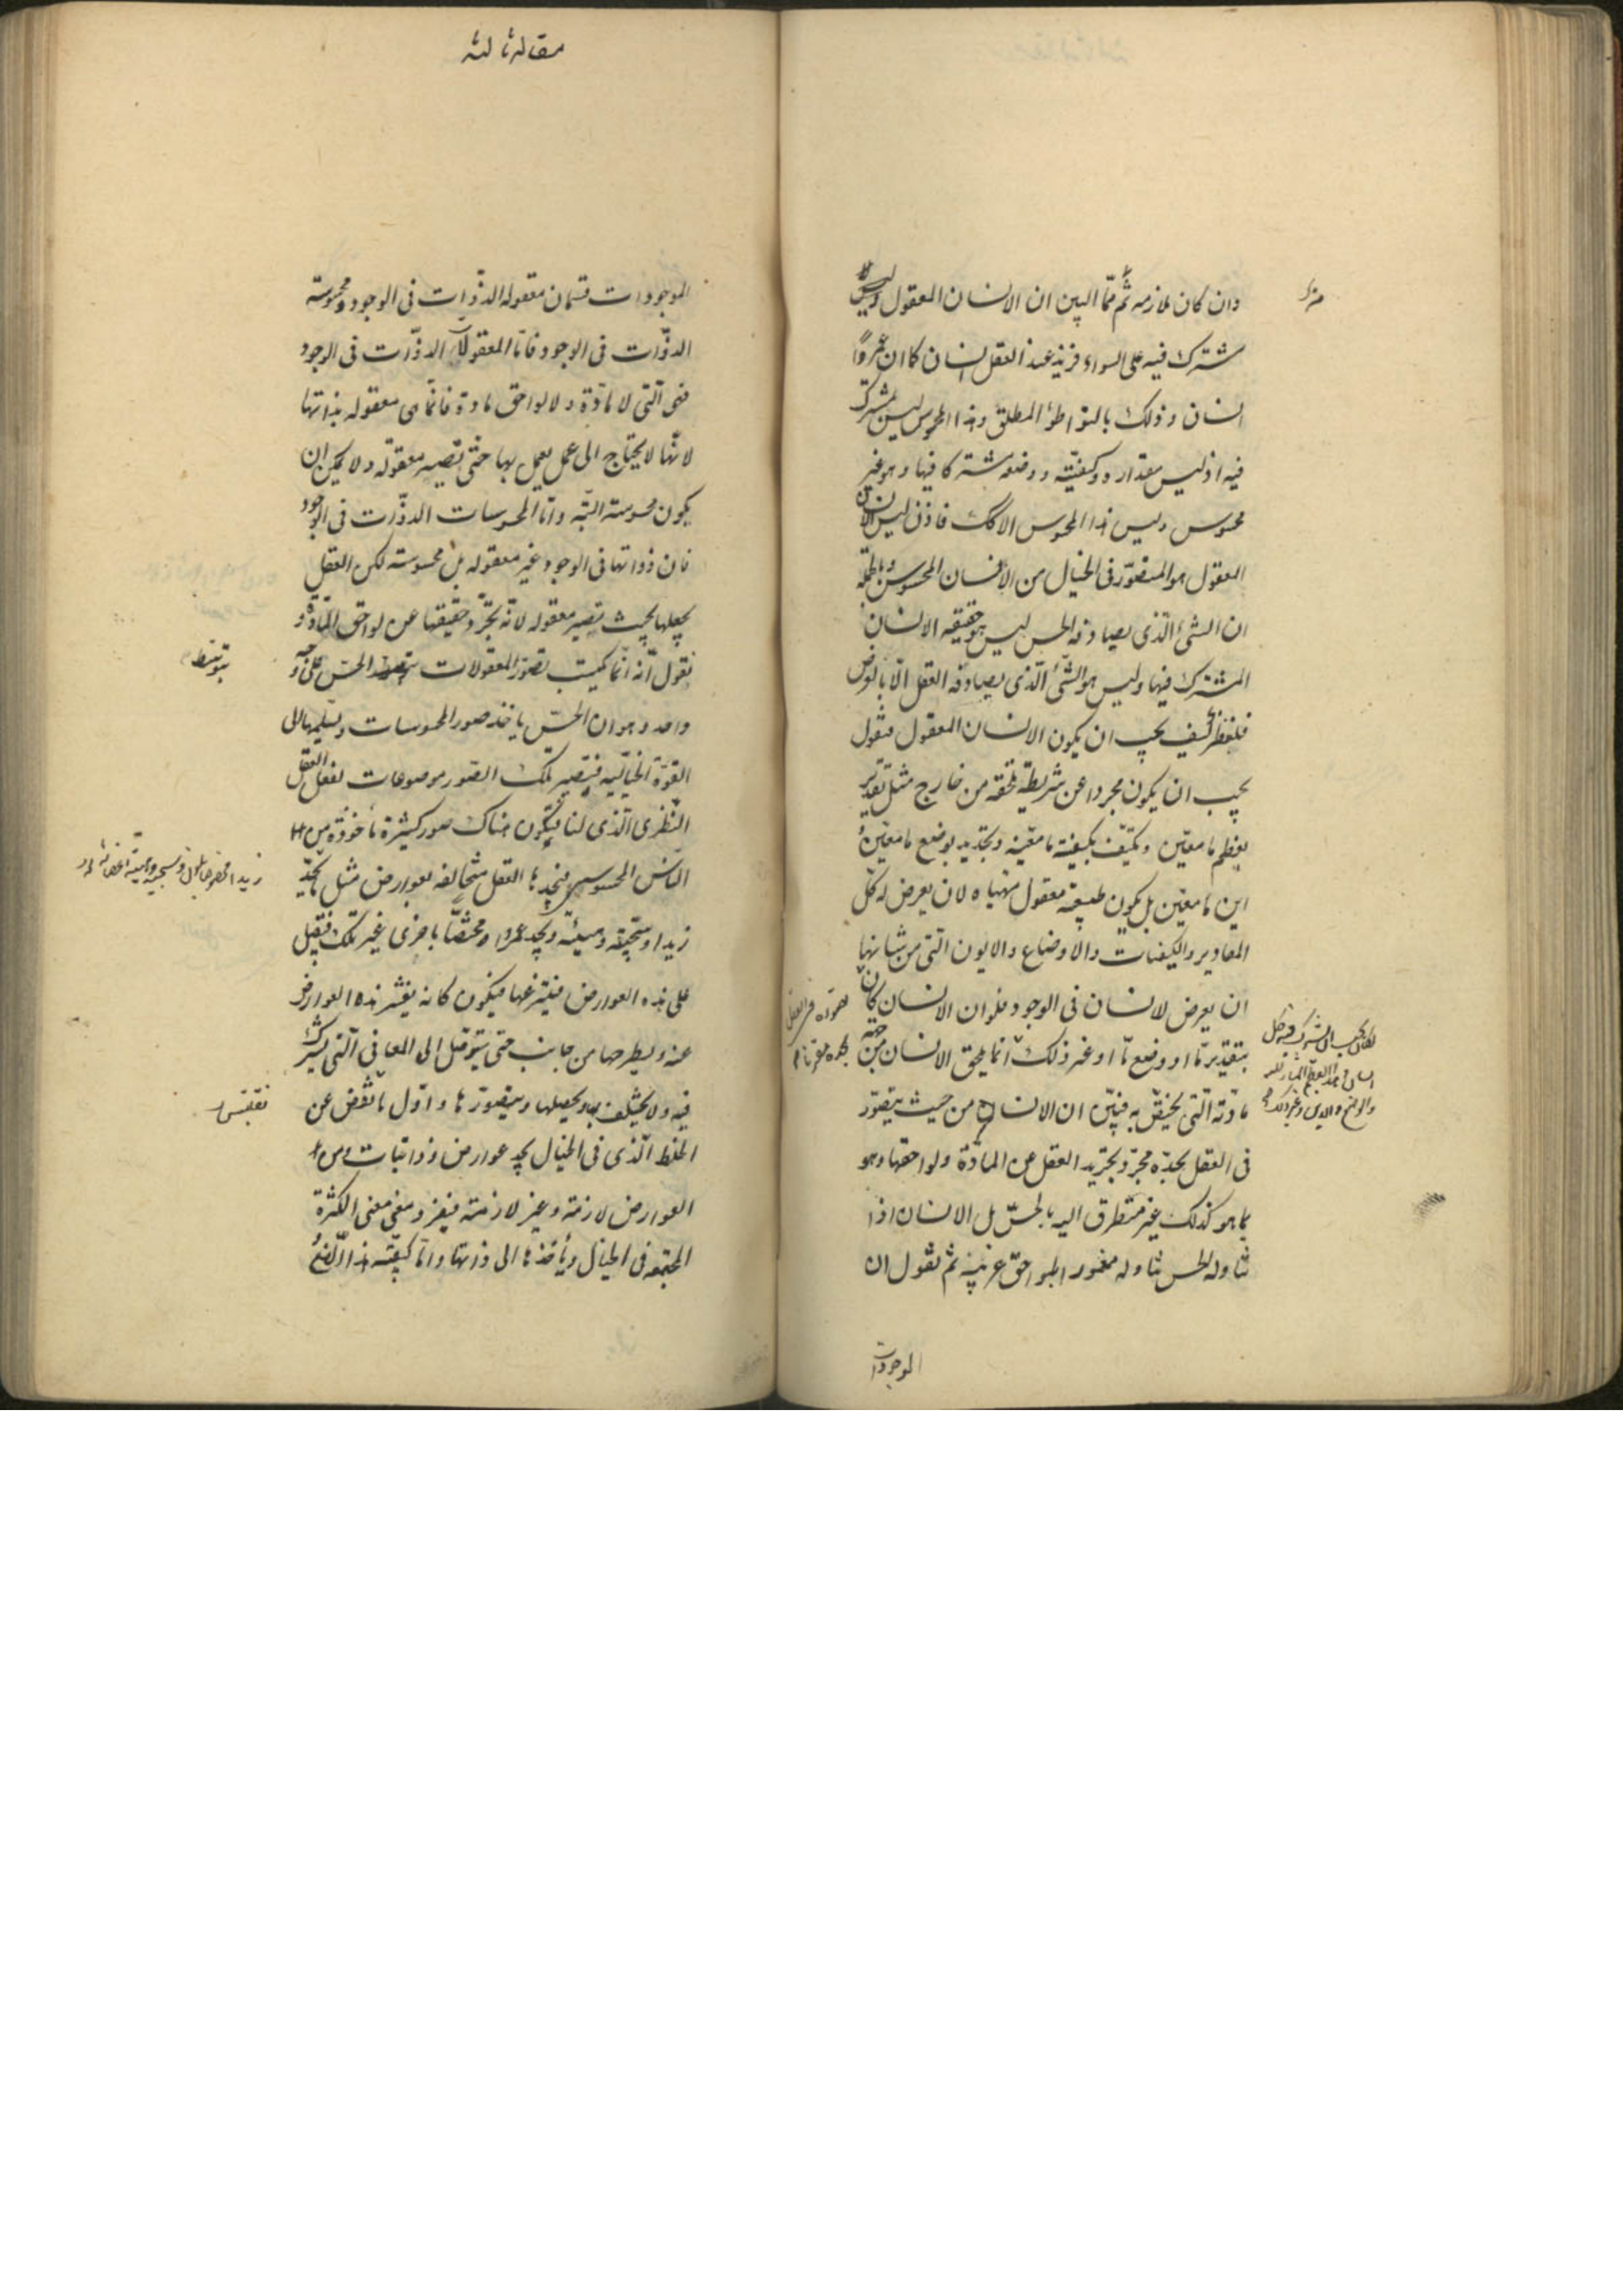 وان كان يلازمه ثم ممّا البين ان الانسان المعقول
مشترك فيه على السواء فزيد عند العقل انسان كما ان عمروًا
انسان وذلك بالتواطؤ المطلق وهذا المحسوس ليس بمشترك
فيه اذ ليس مقداره وكيفيّته ووضعه مشتركا فيها وهو غير
محسوس وليس هذا المحسوس الا كك فاذن ليس الانسان
المعقول هو المتصوّر فى الخيال من الانسان المحسوس وبالجملة
ان الشئ الّذى يصادفه الحس ليس هو حقيقه الانسان
المشترك فيها وليس هو الشّئ الّذى يصادفه العقل الّا بالعرض
فلننظر كيف يجب ان يكون الانسان المعقول فنقول
يجب ان يكون مجردا عن شريطة تلحقه من خارج مثل تقدير
بعظم ما معيّن وتكيّف بكيفيّة ما معيّنه وتحديد بوضع ما معيّن و
اين ما معيّن بل يكون طبيعة معقوله متهياه لان يعرض له كلّ
المقادير والكيفيات والاوضاع والايون التى من شانها
ان يعرض لانسان فى الوجود فلو ان الانسان كان
بتقدير مّا او وضع مّا او غير ذلك انما يلحق الانسان من جهة
مادته الّتى يختصّ به فبيّن ان الانسان من حيث يتصوّر
فى العقل بحدّه مجرّد بتجريد العقل عن المادّة ولواحقها وهو
بما هو كذلك غير متطرق اليه بالحسّ بل الانسان اذا
تناوله الحس تناوله مغمورا بلواحق غريبة ثم نقول ان
الموجودات
مقاله ثالثه
الموجودات قسمان معقوله الذّوات فى الوجود ومحسوسة
الذّوات فى الوجود فامّا المعقولات الذّوات فى الوجود
فهى الّتى لا مادّة ولا لواحق مادة فانّما هى معقوله بذاتها
لانّها لا يحتاج الى عمل يعمل بها حتّى تصير معقوله ولا يمكن ان
يكون محسوسة البتّه وامّا المحسوسات الذّوات فى الوجود
فان ذواتها فى الوجود غير معقوله بل محسوسة لكن العقل
يجعلها بحيث تصير معقوله لانّه يجرّد حقيقتها عن لواحق المادّة و
نقول انّه انّما يكتسب تصوّر المعقولات بتوسط الحسّ على وجه
واحد وهو ان الحسّ ياخذ صور المحسوسات ويسلّمها الى
القوّة الخياليّه فيصير تلك الصّور موضوعات لفعل العقل
النّظرى الّذى لنا فيكون هناك صور كثيرة مأخوذة من
النّاس المحسوسين فيجدها العقل متخالفه بعوارض مثل ما يجد
زيدا وسحنة وهيئة ويجد عمروا مختصّا باخرى غير تلك فيقبل
على هذه العوارض فينزعها فيكون كانه يقشر هذه العوارض
عنه ويطرحها من جانب حتى يتوصّل الى المعانى الّتى يشترك
فيه ولا يختلف به ويحصلها ويتصوّرها واوّل ما تفحّص عن
الخلط الّذى فى الخيال يجد عوارض وذاتيات ومن
العوارض لازمة وغير لازمة فيفرد معنى معنى الكثرة
المجتمعه فى الخيال ويأخذها الى ذاتها وامّا كيفيّه هذا الصّنع
بتوسّط